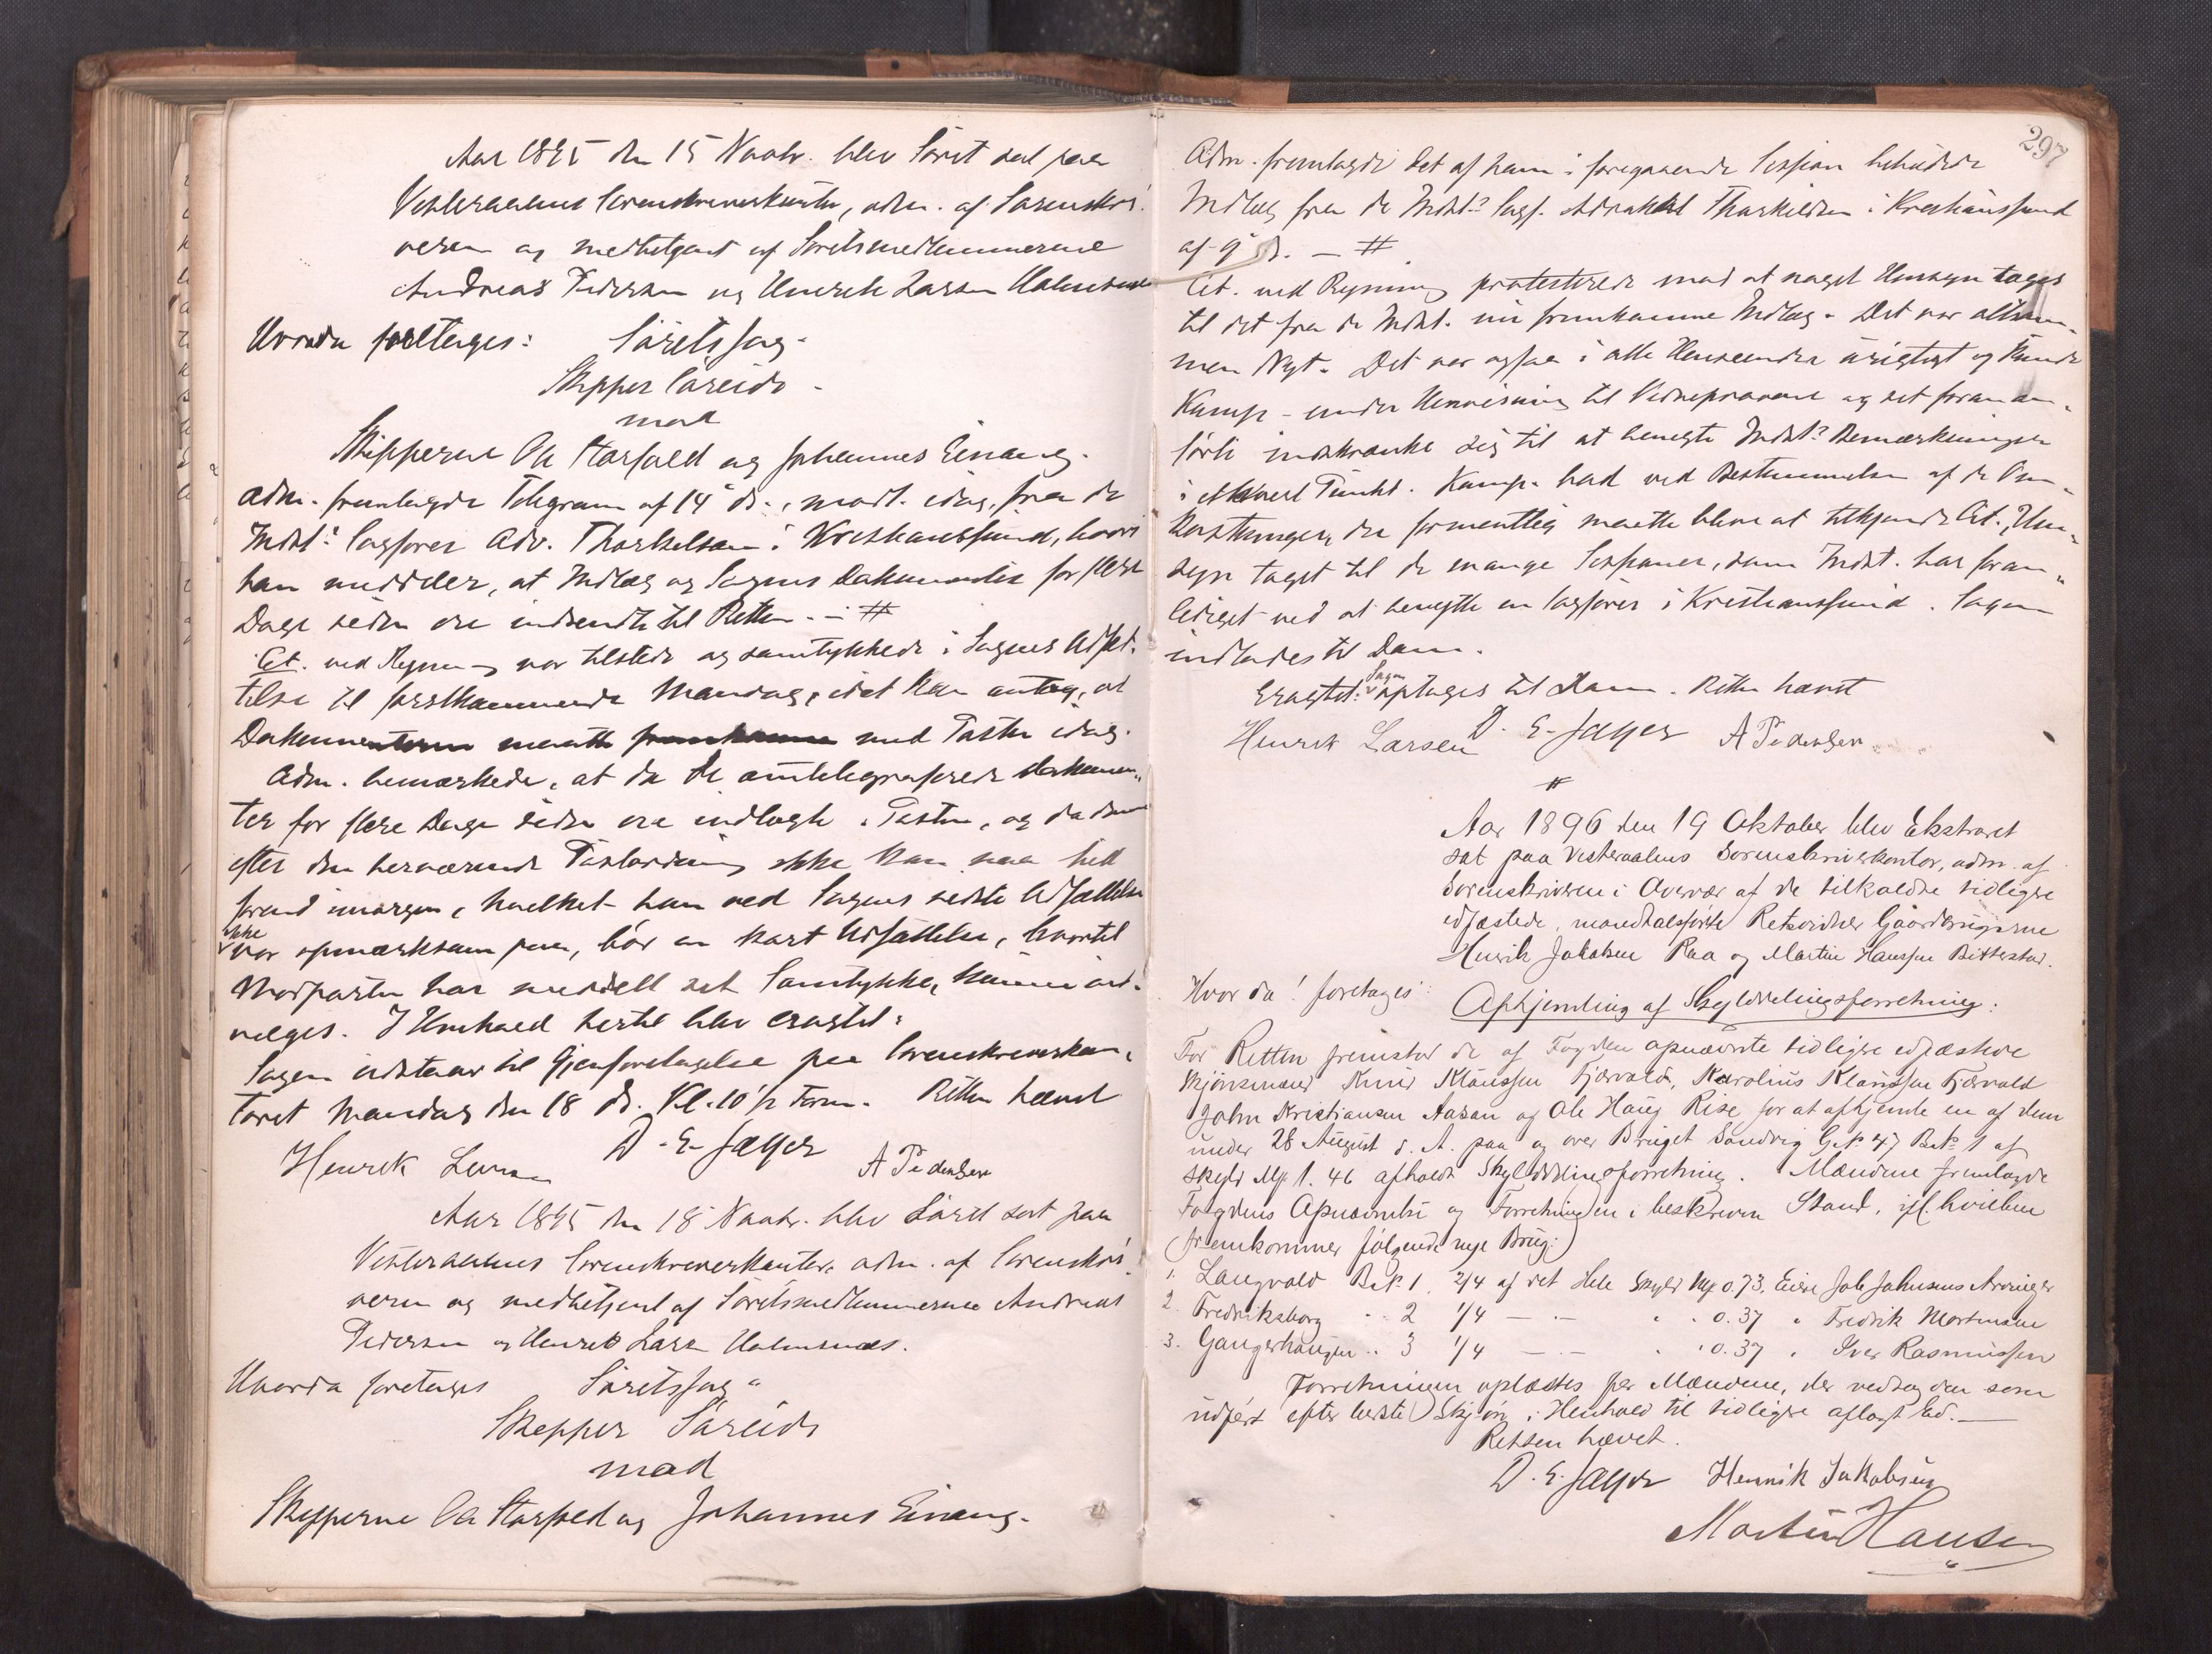 Aar 1895 den 15 Novbr. blev Søret sat paa
Vesteraalens Sorenskriverkontor, adm. af Sorenskri-
veren og medbetjent af Søretsmedlemmerne
Andreas Pedersen og Henrik Larsen Holmsnæs
Hvorda foretoges: Søretssag.
Skipper Søreide
mod
Skipperne Ole Storfold og Johannes Einang.
Adm. fremlagde Telegram af 14 ds., modt. idag, fra de
Indst.s Sagfører Adv. Thorkelsen i Kristianssund, hvori
han meddeler, at Indlæg og Sagens Dokumenter for flere
Dage siden ere indsendte til Retten. — #
Cit. ved Rynning var tilstede og samtykkede i Sagens Udsæt-
telse til førstkommende Mandag, idet han antog, at
Dokumenterne maatte fremkomme med Posten idag.
Adm. bemærkede, at da de omtelegraferede Dokumen-
ter for flere Dage siden ere indlagte i Posten, og da denne
efter den herværende Postordning ikke kan naa hid
førend imorgen, hvilket han ved Sagens sidste Udsættelse
ikke
var opmærksom paa, bør en kort Udsættelse, hvortil
Modparten har meddelt sit Samtykke, kunne ind-
rømmes. I Henhold hertil blev eragtet:
Sagen udstaar til Gjenforetagelse paa Sorenskriverkon-
toret Mandag den 18 ds. Kl. 10 1/2 Form. Retten hævet
Henrik Larsen D. E. Jæger A Pedersen
Aar 1895 den 18 Novbr. blev Søret sat paa
Vesteraalens Sorenskriverkontor, adm. af Sorenskri-
veren og medbetjent af Søretsmedlemmerne Andreas
Pedersen og Henrik Larsen Holmsnæs.
Hvorda foretoges Søretssag
Skipper Søreide
mod
Skipperne Ole Storfold og Johannes Einang.
297
Adm. fremlagde det af ham i foregaaende Session bebudede
Indlæg fra de Indst.s Sagf. Advokat Thorkildsen i Kristianssund
af 9 ds. — #
Cit. ved Rynning protesterede mod at noget Hensyn toges
til det fra de Indst. nu fremkomne Indlæg. Det var altsam-
men Nyt. Det var ogsaa i alle Henseender urigtigt og kunde
Komp. under Henvisning til Vidneprovene og det foran an-
førte indskrænke sig til at benegte Indst.s Bemærkninger
i ethvert Punkt. Komp. bad ved Bestemmelsen af de Om-
kostninger, der formentlig maatte blive at tilkjende Cit., Hen-
syn taget til de mange Sessioner, som Indst. har foran-
lediget ved at benytte en Sagfører i Kristianssund. Sagen
indlodes til Dom.
Eragtet: Sagen optages til Dom. Retten hævet
Henrik Larsen D. E. Jæger A Pedersen
#
Aar 1896 den 19 Oktober blev Ekstraret
sat paa Vesteraalens Sorenskriverkontor, adm. af
Sorenskriveren i Overvær af de tilkaldte tidligere
edfæstede, mandtalsførte Retsvidner Gaardbrugerne
Henrik Jakobsen Raa og Martin Hanssen Bitterstad.
Hvorda! foretoges: Afhjemling af Skylddelingsforretning:
For Retten fremstod de af Fogden opnævnte tidligere edfæstede
Skjønsmænd Knut Klaussen Fjærvold, Karolius Klaussen Fjærvold
John Kristiansen Aasan og Ole Haug Rise for at afhjemle en af dem
under 28 August d. A. paa og over Bruget Sandvig G.No 47 B.No 1 af
skyld Mk 1.46 afholdt Skylddelingsforretning. Mændene fremlagde
Fogdens Opnævnelse og Forretningen i beskreven Stand, ifl. hvilken
fremkommer følgende nye Brug:
1. Langvold B.No 1. 2/4 af det Hele Skyld Mk 0.73, Eiere Joh Johnsens Arvinger
2. Fredriksborg " 2 1/4 — " — " " 0.37 " Fredrik Mortensen
3. Gangerhaugen " 3 1/4 — " — " " 0.37 " Iver Rasmussen
Forretningen oplæstes for Mændene, der vedtog den som
udført efter bedste Skjøn i Henhold til tidligere aflagt Ed. —
Retten hævet.
D. E. Jæger Henrik Jakobsen
Martin Hansen